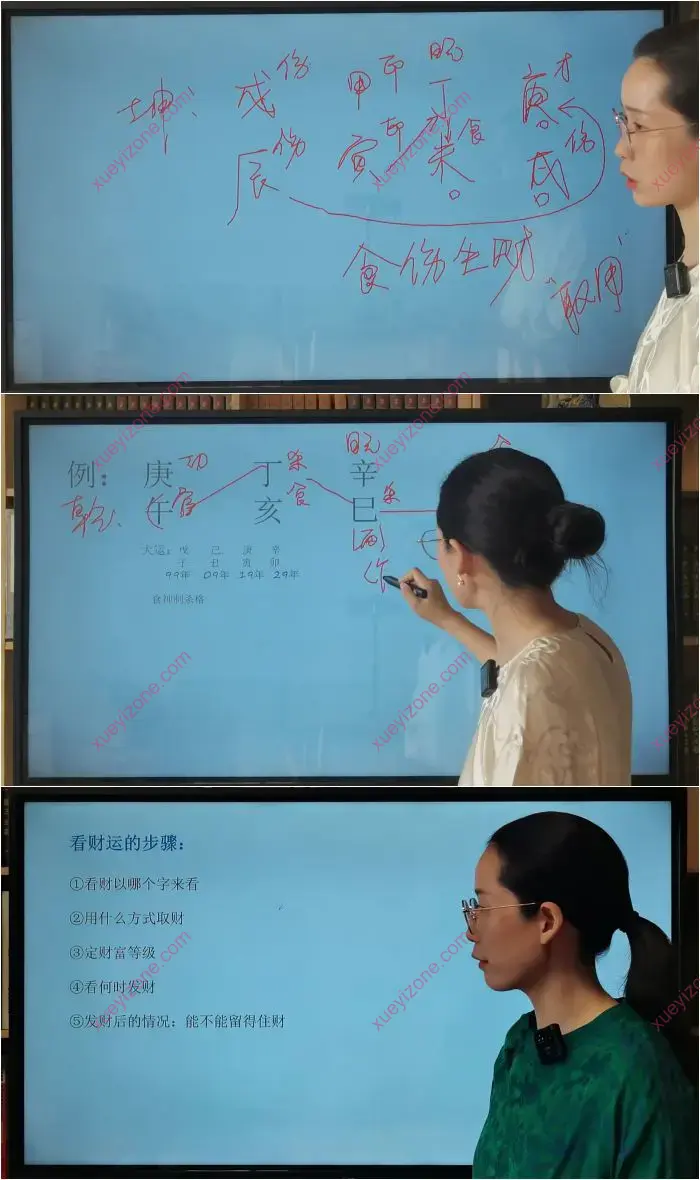 坤: 戊伤 甲印 丁日元 庚才
辰伤 寅印 未食 戌伤
食伤生财
"取用"
例: 庚劫 丁杀 辛日元
乾: 午官 亥食 巳杀
[丙]
大运: 戊 己 庚 辛
子 丑 寅 卯
99年 09年 19年 29年
食神制杀格
看财运的步骤:
①看财以哪个字来看
②用什么方式取财
③定财富等级
④看何时发财
⑤发财后的情况: 能不能留得住财
xueyizone.com